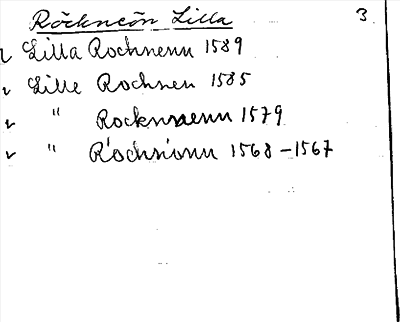 Röckneön Lilla 3
v Lilla Rochnenn 1589
v Lille Rochnen 1585
v " Rocknaenn 1579
v " Rochnionn 1568-1567